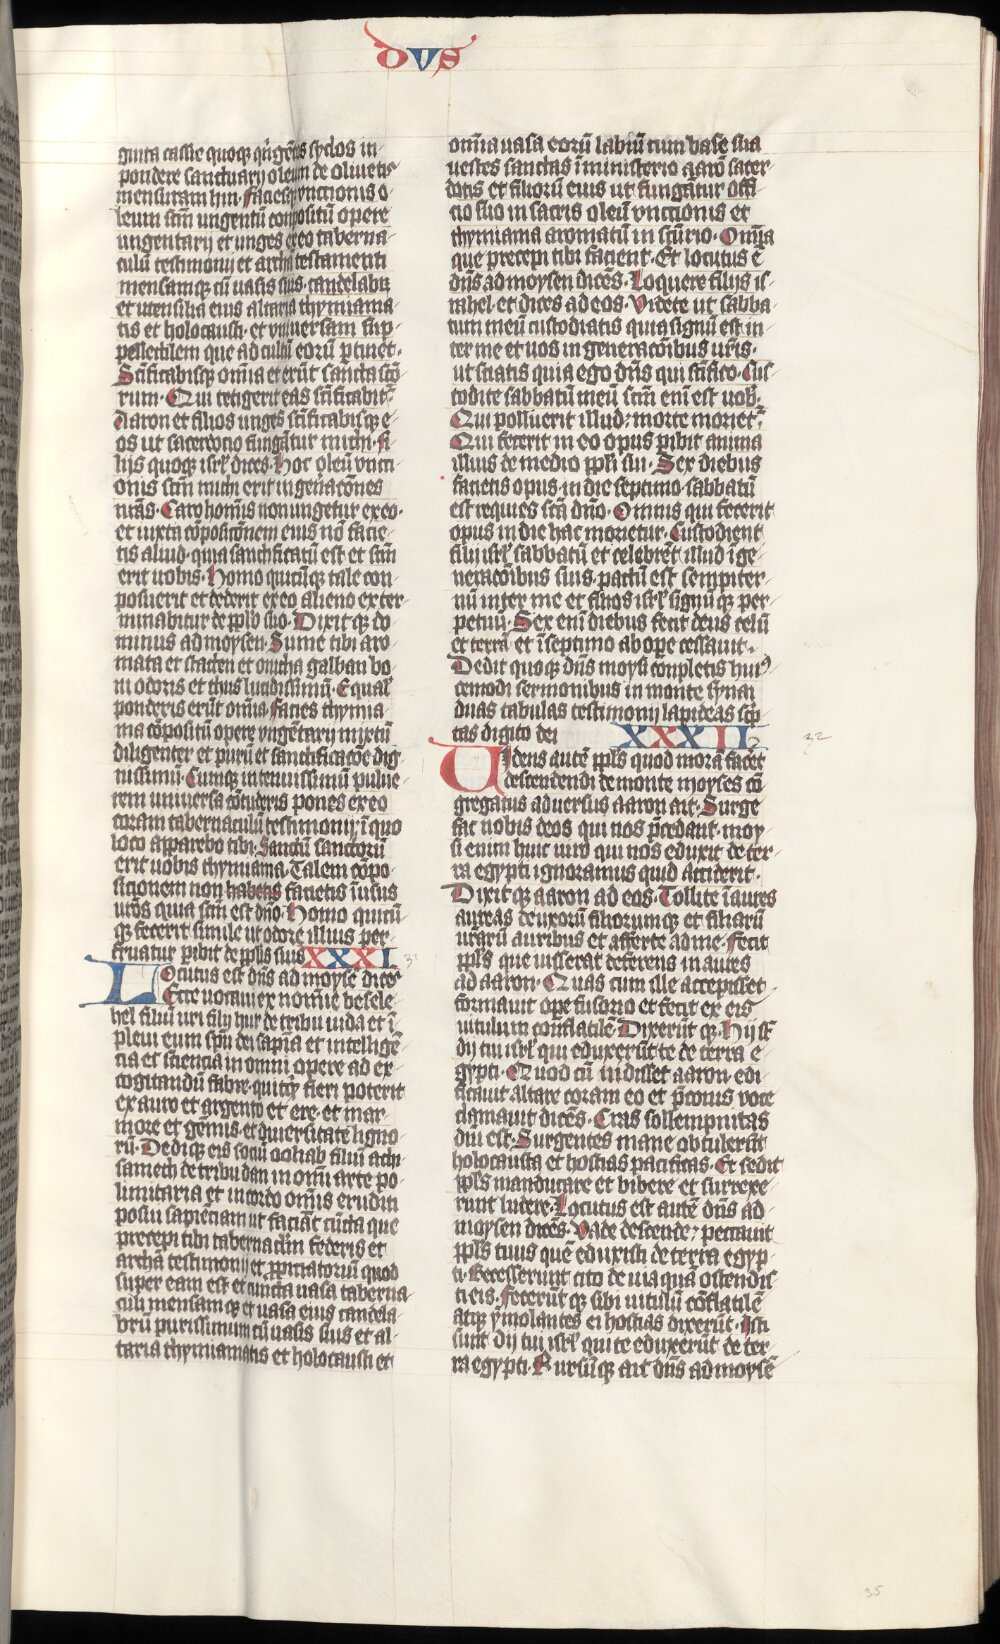 dvs
ginta cassie quoq; q̄ngētꝭ syclos in
pondere sanctuarij oleum de oliuetis
mensuram hin. Faciesq; vnctionis o-
leum sc̄m ungentū compositū opere
ungentarij et unges ex eo taberna-
culū testimonij et archā testamenti
mensamq; cū uasis suis. candelabꝝ
et utensilia eius altaria thymiama-
tis et holocausti. et vniuersam sup-
pellectilem que ad cultū eorū p̄tinēt.
Sc̄ificabisq; om̄ia et erūt sancta sc̄o
rum. Qui tetigerit eas sc̄ificabit̄
Aaron et filios unges sc̄ificabisq; e-
os ut sacerdocio fūgātur michi. fi-
lijs quoq; isrl̄ dices. hoc oleū vncti-
onis sc̄m michi erit in gen̄acōnes
ur̄as. Caro hom̄is non ungetur ex eo.
et iuxta cōposicōnem eius nō facie-
tis aliud. quia sanctificatū est et sc̄m
erit uobis. Homo quicūq; tale con-
posuerit et dederit ex eo alieno exter-
minabitur de pplo suo. Dixitq; do-
minus ad moysen. Sume tibi aro-
mata et stacten et onicha galban bo-
ni odoris et thus lucidissimū. Equal'
ponderis erūt om̄ia. facies thymia-
ma cōpositū opere vngētarij mixtū
diligenter et purū et sanctificacōe dig-
nissimū. Cumq; in tenuissimū pulue-
rem uniuersa cōtuderis pones ex eo
coram tabernaculū testimonij. ī quo
loco apparebo tibi. Sanctū sanctorū
erit uobis thymiama. Talem cōpo-
sicionem non habetis facietis ī usus
ur̄os quia sc̄m est dn̄o. Homo quicū-
q; fecerit simile ut odore illius per
fruatur p̄ibit de pplis suis XXXI 31
Locutus est dn̄s ad moysē dicēs
Ecce uocaui ex nom̄ie besele-
hel filiū uri filij hur de tribu iuda et ī
pleui eum sp̄u dei sap̄ia et intelligē-
cia et sciencia in omni opere ad ex
cogitandū fabre. quicq̄ fieri poterit
ex auro et argento et ere. et mar-
more et gēmis. et diuersitate ligno-
rū. Dediq; eis sociū ooliab filiū achi-
samech de tribu dan in om̄i arte po-
limitaria et in cordo om̄is eruditi
posui sapiēciam ut faciāt cūcta que
precepi tibi tabernaclm̄ federis et
archā testimonij et p̄piciatoriū quod
super eam est et cuncta uasa taberna-
culi mensamq; et uasa eius candela-
brū purissimum cū uasis suis et al-
taria thymiamatis et holocausti et
om̄ia uasa eorū labiū cum base sua
uestes sanctas ī ministerio aarō sacer-
dotis et filiorū eius ut fungātur offi-
cio suo in sacris oleū vnctionis et
thymiama aromatū in sc̄urio. Om̄ia
que precepi tibi facient. Et locutus ē
dn̄s ad moysen dicēs. Loquere filijs is-
rahel. et dices ad eos. Videte ut sabba
tum meū custodiatis quia signū est in-
ter me et uos in generacōibus ur̄is.
ut sciatis quia ego dn̄s qui sc̄ifico. Cus-
todite sabbatū meū sc̄m eni est uob̄.
Qui polluerit illud: morte moriet̄.
Qui fecerit in eo opus p̄ibit anima
illius de medio ppl̄i sui. Sex diebus
facietis opus. in die septimo sabbatū
est requies sc̄a dn̄o. Omnis qui fecerit
opus in die hac morietur. Custodient
filij isrl̄ sabbatū et celebrēt illud ī ge-
neracōibus suis. pactū est sempiter-
nū inter me et filios isrl̄ signūq; per-
petuū. Sex eni diebus fecit deus celū
et terrā et ī septimo ab ope cessauit.
Dedit quoq; dn̄s moysi conpletis huiꝰ
cemodi sermonibus in monte synai
duas tabulas testimonij lapideas scp̄
tas digito dei XXXII 32
Videns autē ppl̄s quod morā facēt
descendendi de monte moyses cō-
gregatus aduersus aaron ait. Surge
fac nobis deos qui nos p̄cedant. moy-
si enim huic uiro qui nos eduxit de ter-
ra egypti ignoramus quid acciderit.
Dixitq; aaron ad eos. Tollite īaures
aureas de uxorū filiorumq; et filiarū
ur̄arū auribus et afferte ad me. Fecit
ppl̄s que iusserat deferens inaures
ad aaron. Quas cum ille accepisset
formauit ope fusorio et fecit ex eis
uitulum conflatilē. Dixerūtq; Hij st̄
dij tui isrl̄ qui eduxerūt te de terra e-
gypti. Quod cū indisset aaron. edi-
ficauit altare coram eo et p̄conis voce
clamauit dicēs. Cras sollempnitas
dn̄i est. Surgentes mane obtulerūt
holocausta et hostias pacificas. Et sedit
ppl̄s manducare et bibere et surrexe-
runt ludere. Locutus est autē dn̄s ad
moysen dicēs. Vade descende: peccauit
ppl̄s tuus quē eduxisti de terra egyp-
ti. Recesserunt cito de uia quā ostendis-
ti eis. Fecerūtq; sibi uitulū cōflatilē
atq; ymolantes ei hostias dixerūt. Isti
sunt dij tui isrl̄ qui te eduxerūt de ter-
ra egypti. Rursūq; ait dn̄s ad moysē
35